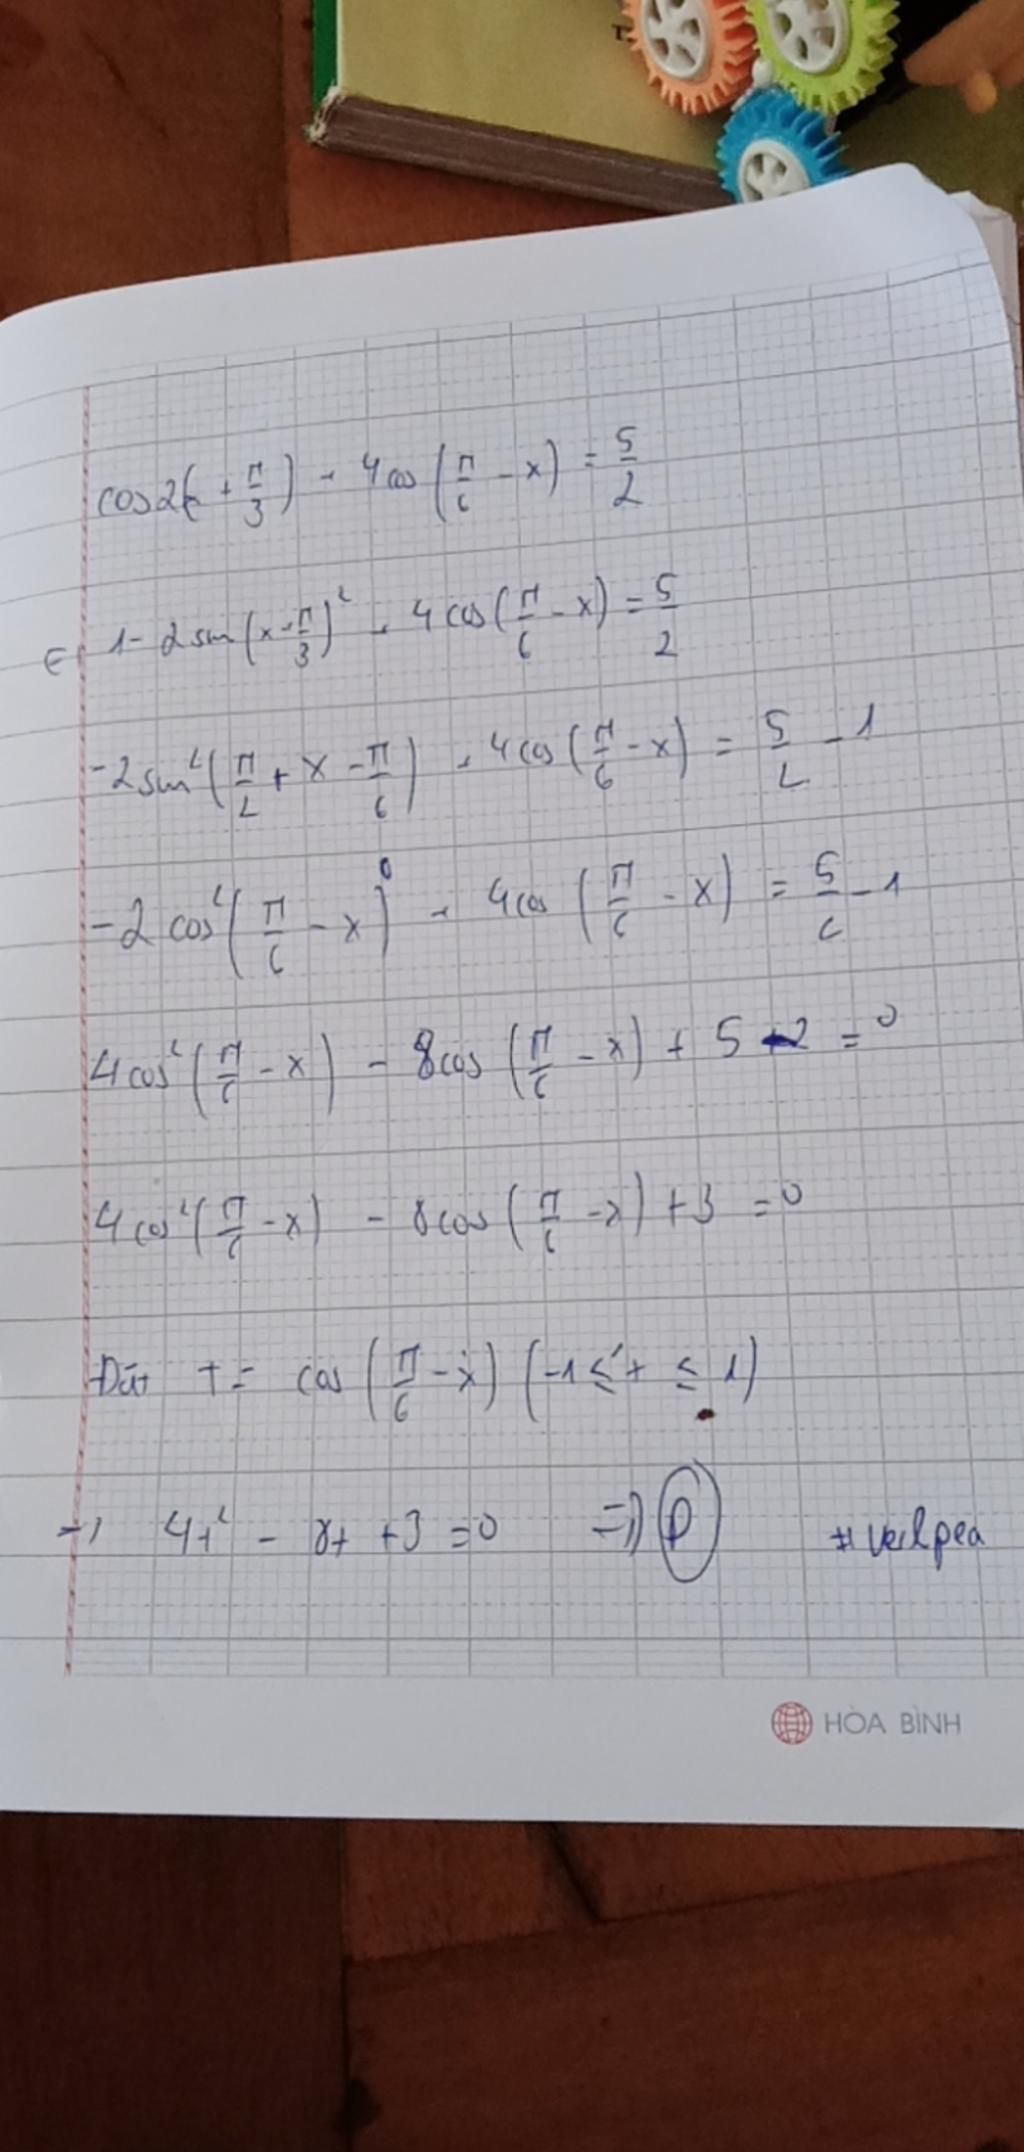 cos2(x + π/3) + 4cos(π/6 - x) = 5/2
1 - 2sin(x + π/3)² + 4cos(π/6 - x) = 5/2
-2sin²(π/2 + x - π/6) + 4cos(π/6 - x) = 5/2 - 1
-2cos²(π/6 - x) + 4cos(π/6 - x) = 5/2 - 1
4cos²(π/6 - x) - 8cos(π/6 - x) + 5 - 2 = 0
4cos²(π/6 - x) - 8cos(π/6 - x) + 3 = 0
Đặt t = cos(π/6 - x) (-1 ≤ t ≤ 1)
=> 4t² - 8t + 3 = 0 => D
HÒA BÌNH